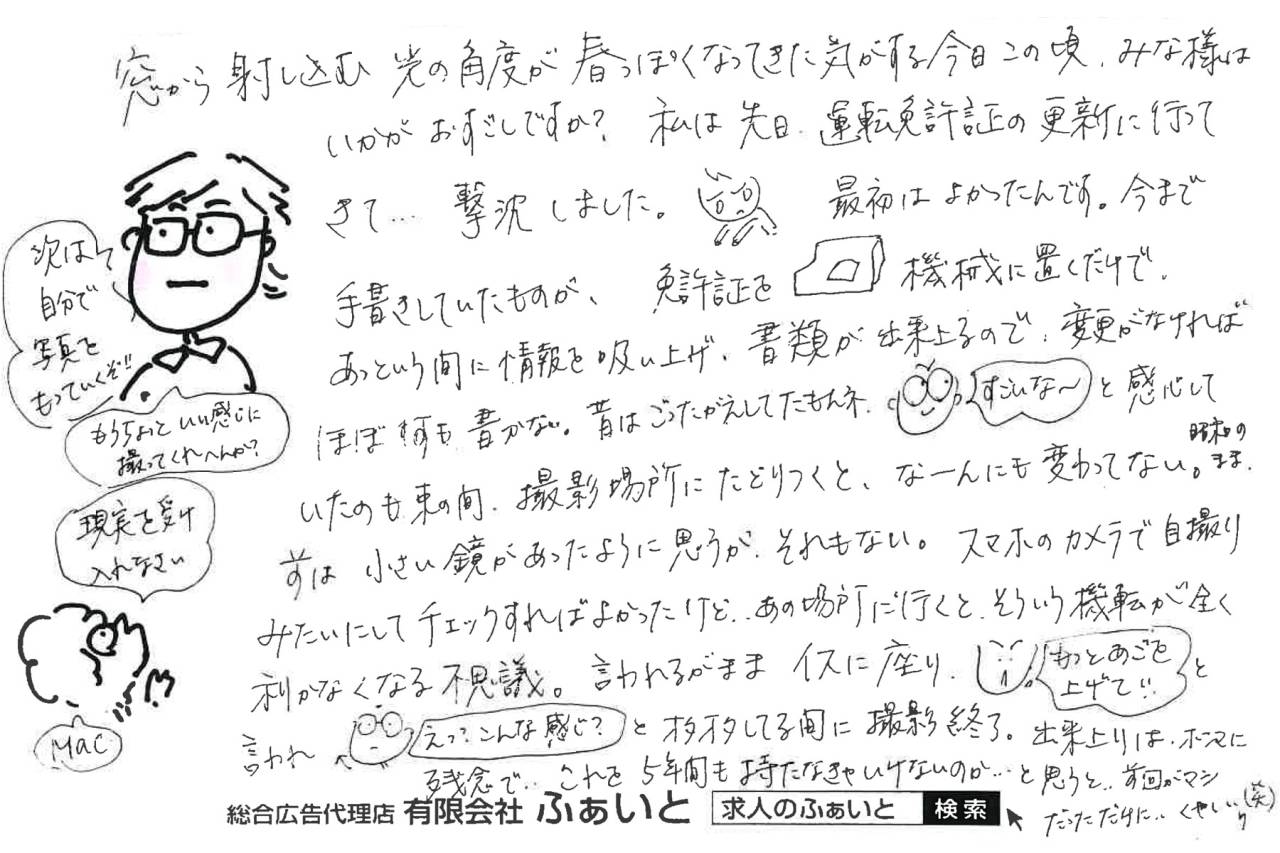 窓から射し込む光の角度が春っぽくなってきた気がする今日この頃、みな様は
いかがおすごしですか？ 私は先日、運転免許証の更新に行って
きて… 撃沈しました。 最初はよかったんです。今まで
手書きしていたものが、免許証を 機械に置くだけで、
あっという間に情報を吸い上げ、書類が出来上るので、変更がなければ
ほぼ何も書かない。昔はごったがえしてたもんネ、 すごいな〜 と感心して
いたのも束の間、撮影場所にたどりつくと、なーんにも変わってない。昭和のまま、
前は小さい鏡があったように思うが、それもない。スマホのカメラで自撮り
みたいにしてチェックすればよかったけど…あの場所に行くと、そういう機転が全く
利かなくなる不思議。言われるがままイスに座り、 もっとあごを上げて!! と
言われ えっ?こんな感じ? とオタオタしてる間に撮影終了。出来上りは、ホンマに
残念で… これを5年間も持たなきゃいけないのか…と思うと、前回がマシ
だっただけに.. くやしい(笑)
次は
自分で
写真を
もっていくぞ!!
もうちょっといい感じに
撮ってくれへんか？
現実を受け
入れなさい
Mac
総合広告代理店 有限会社 ふぁいと 求人のふぁいと 検索